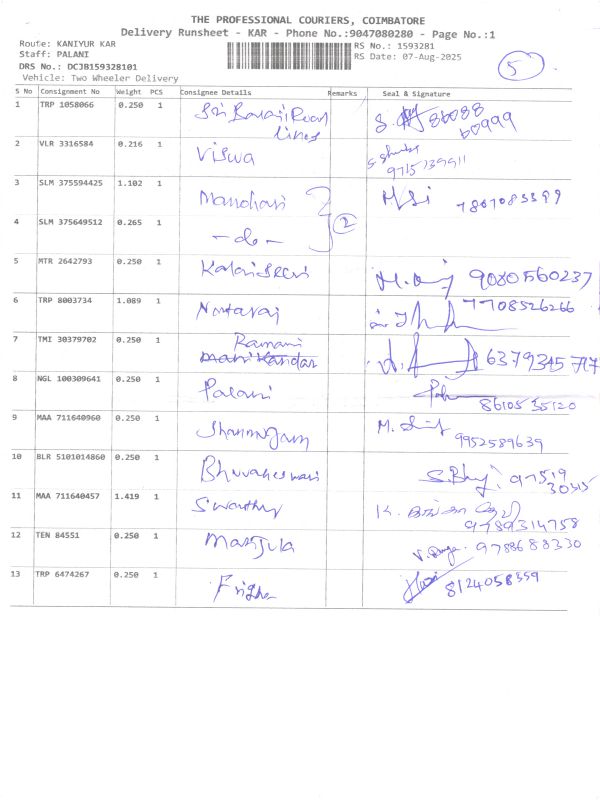 THE PROFESSIONAL COURIERS, COIMBATORE
Delivery Runsheet - KAR - Phone No.:9047080280 - Page No.:1
Route: KANIYUR KAR RS No.: 1593281
Staff: PALANI RS Date: 07-Aug-2025
5
DRS No.: DCJB159328101
Vehicle: Two Wheeler Delivery
S No Consignment No Weight PCS Consignee Details Remarks Seal & Signature
1 TRP 1058066 0.250 1 Sri Balaji Road lines S. 86088 60999
2 VLR 3316584 0.216 1 Viswa 9715739911
3 SLM 375594425 1.102 1 Manohari 2
4 SLM 375649512 0.265 1 - do -
5 MTR 2642793 0.250 1 Kalaiselvi 9080560237
6 TRP 8003734 1.089 1 Nataraj 7708526266
7 TMI 30379702 0.250 1 Ramani 6379345797
8 NGL 100309641 0.250 1 Palani 8610535120
9 MAA 711640960 0.250 1 Shanmugam 9952589639
10 BLR 5101014860 0.250 1 Bhuvaneswari 97519 30315
11 MAA 711640457 1.419 1 Swathy 9789314758
12 TEN 84551 0.250 1 Manjula 9788688330
13 TRP 6474267 0.250 1 8124058359